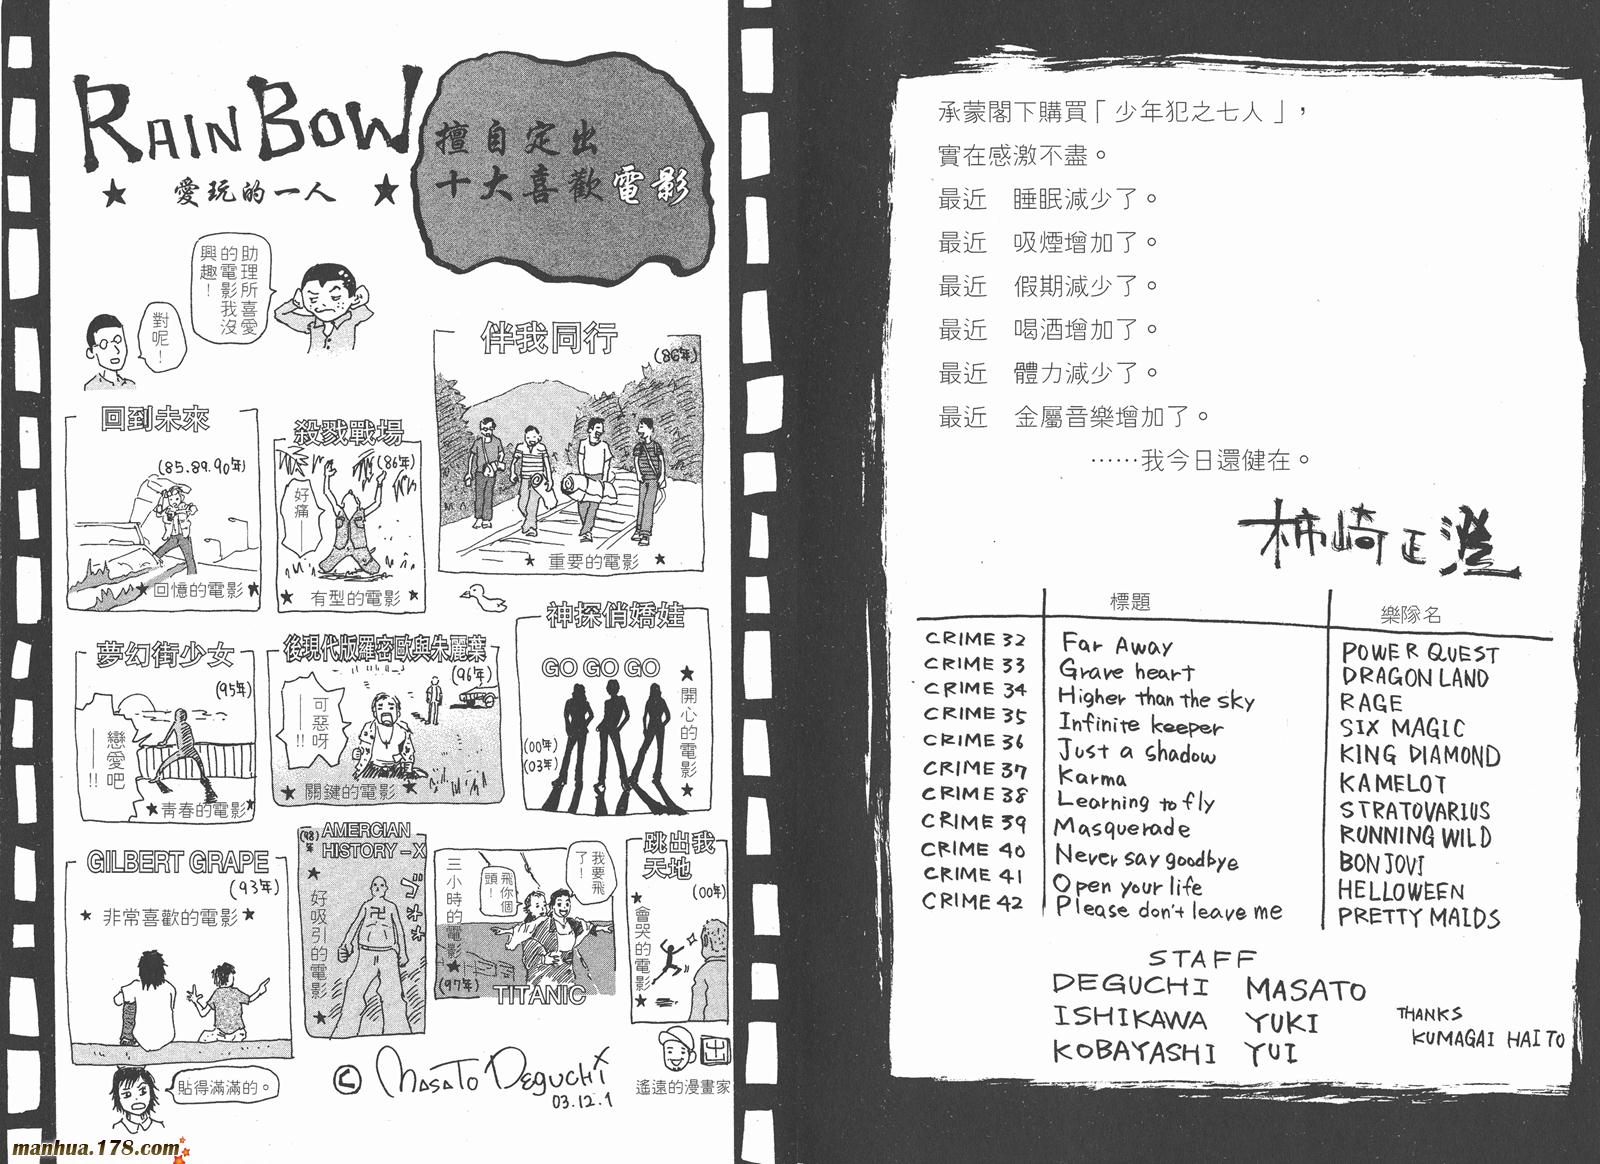 承蒙閣下購買「少年犯之七人」，
實在感激不盡。
最近　睡眠減少了。
最近　吸煙增加了。
最近　假期減少了。
最近　喝酒增加了。
最近　體力減少了。
最近　金屬音樂增加了。
……我今日還健在。
柿崎正澄
標題 樂隊名
CRIME 32 Far Away POWER QUEST
CRIME 33 Grave heart DRAGON LAND
CRIME 34 Higher than the sky RAGE
CRIME 35 Infinite keeper SIX MAGIC
CRIME 36 Just a shadow KING DIAMOND
CRIME 37 Karma KAMELOT
CRIME 38 Learning to fly STRATOVARIUS
CRIME 39 Masquerade RUNNING WILD
CRIME 40 Never say goodbye BON JOVI
CRIME 41 Open your life HELLOWEEN
CRIME 42 Please don't leave me PRETTY MAIDS
STAFF
DEGUCHI MASATO
ISHIKAWA YUKI
KOBAYASHI YUI
THANKS
KUMAGAI HAITO
RAINBOW
★ 愛玩的一人 ★
擅自定出
十大喜歡電影
助理所喜愛
的電影我沒
興趣！
對呢！
伴我同行
(86年)
★ 重要的電影 ★
殺戮戰場
(86年)
好痛——
★ 有型的電影 ★
回到未來
(85.89.90年)
★ 回憶的電影 ★
神探俏嬌娃
GO GO GO
(00年)
(03年)
★開心的電影★
後現代版羅密歐與朱麗葉
(96年)
可惡呀——!!
★ 關鍵的電影 ★
夢幻街少女
(95年)
戀愛吧——!!
★青春的電影★
跳出我
天地
(00年)
★會哭的電影★
我要飛
了！
飛你個
頭！
三小時的電影★
(97年)
TITANIC
AMERCIAN
HISTORY–X
(98年)
★好吸引的電影★
ゴゴゴ
GILBERT GRAPE
(93年)
★ 非常喜歡的電影 ★
貼得滿滿的。
© MASATO DEGUCHI
03.12.1
出
遙遠的漫畫家
manhua.178.com